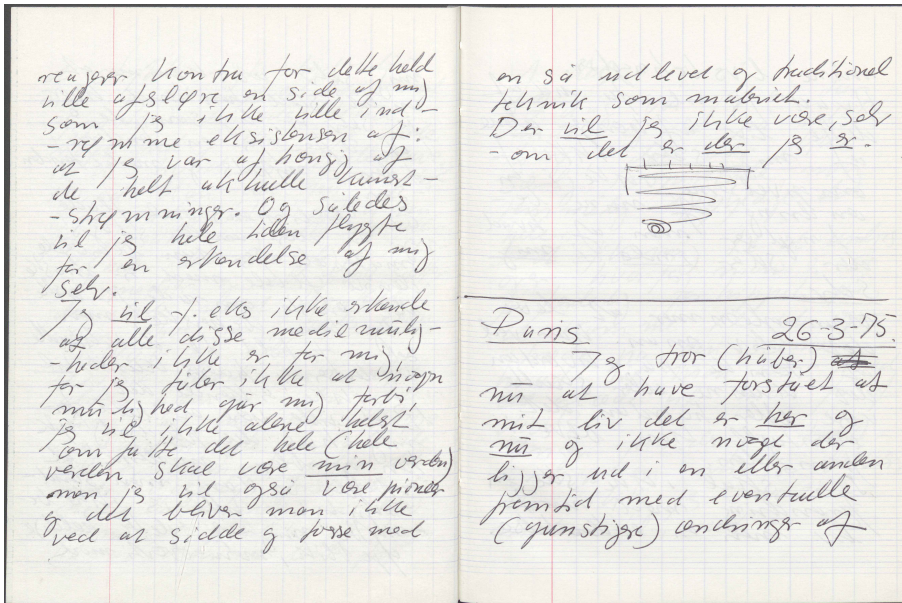 reagerer kontra for dette held
ville afsløre en side af mig
som jeg ikke ville ind-
-rømme eksistensen af:
at jeg var afhængig af
de helt aktuelle kunst-
-strømninger. Og således
vil jeg hele tiden flygte
for en erkendelse af mig
selv.
Jeg vil f. eks ikke erkende
at alle disse mediemulig-
-heder ikke er for mig,
for jeg føler ikke at nogen
mulighed går mig forbi,
jeg vil ikke alene helst
omfatte det hele (hele
verden skal være min verden)
men jeg vil også være pioner
og det bliver man ikke
ved at sidde og tosse med
en så udlevet og traditionel
teknik som maleriet.
Der vil jeg ikke være, selv
-om det er der jeg er.
Paris 26-3-75.
Jeg tror (håber) at
nu at have forstået at
mit liv det er her og
nu og ikke noget der
ligger ud i en eller anden
fremtid med eventuelle
(gunstigere) ændringer af